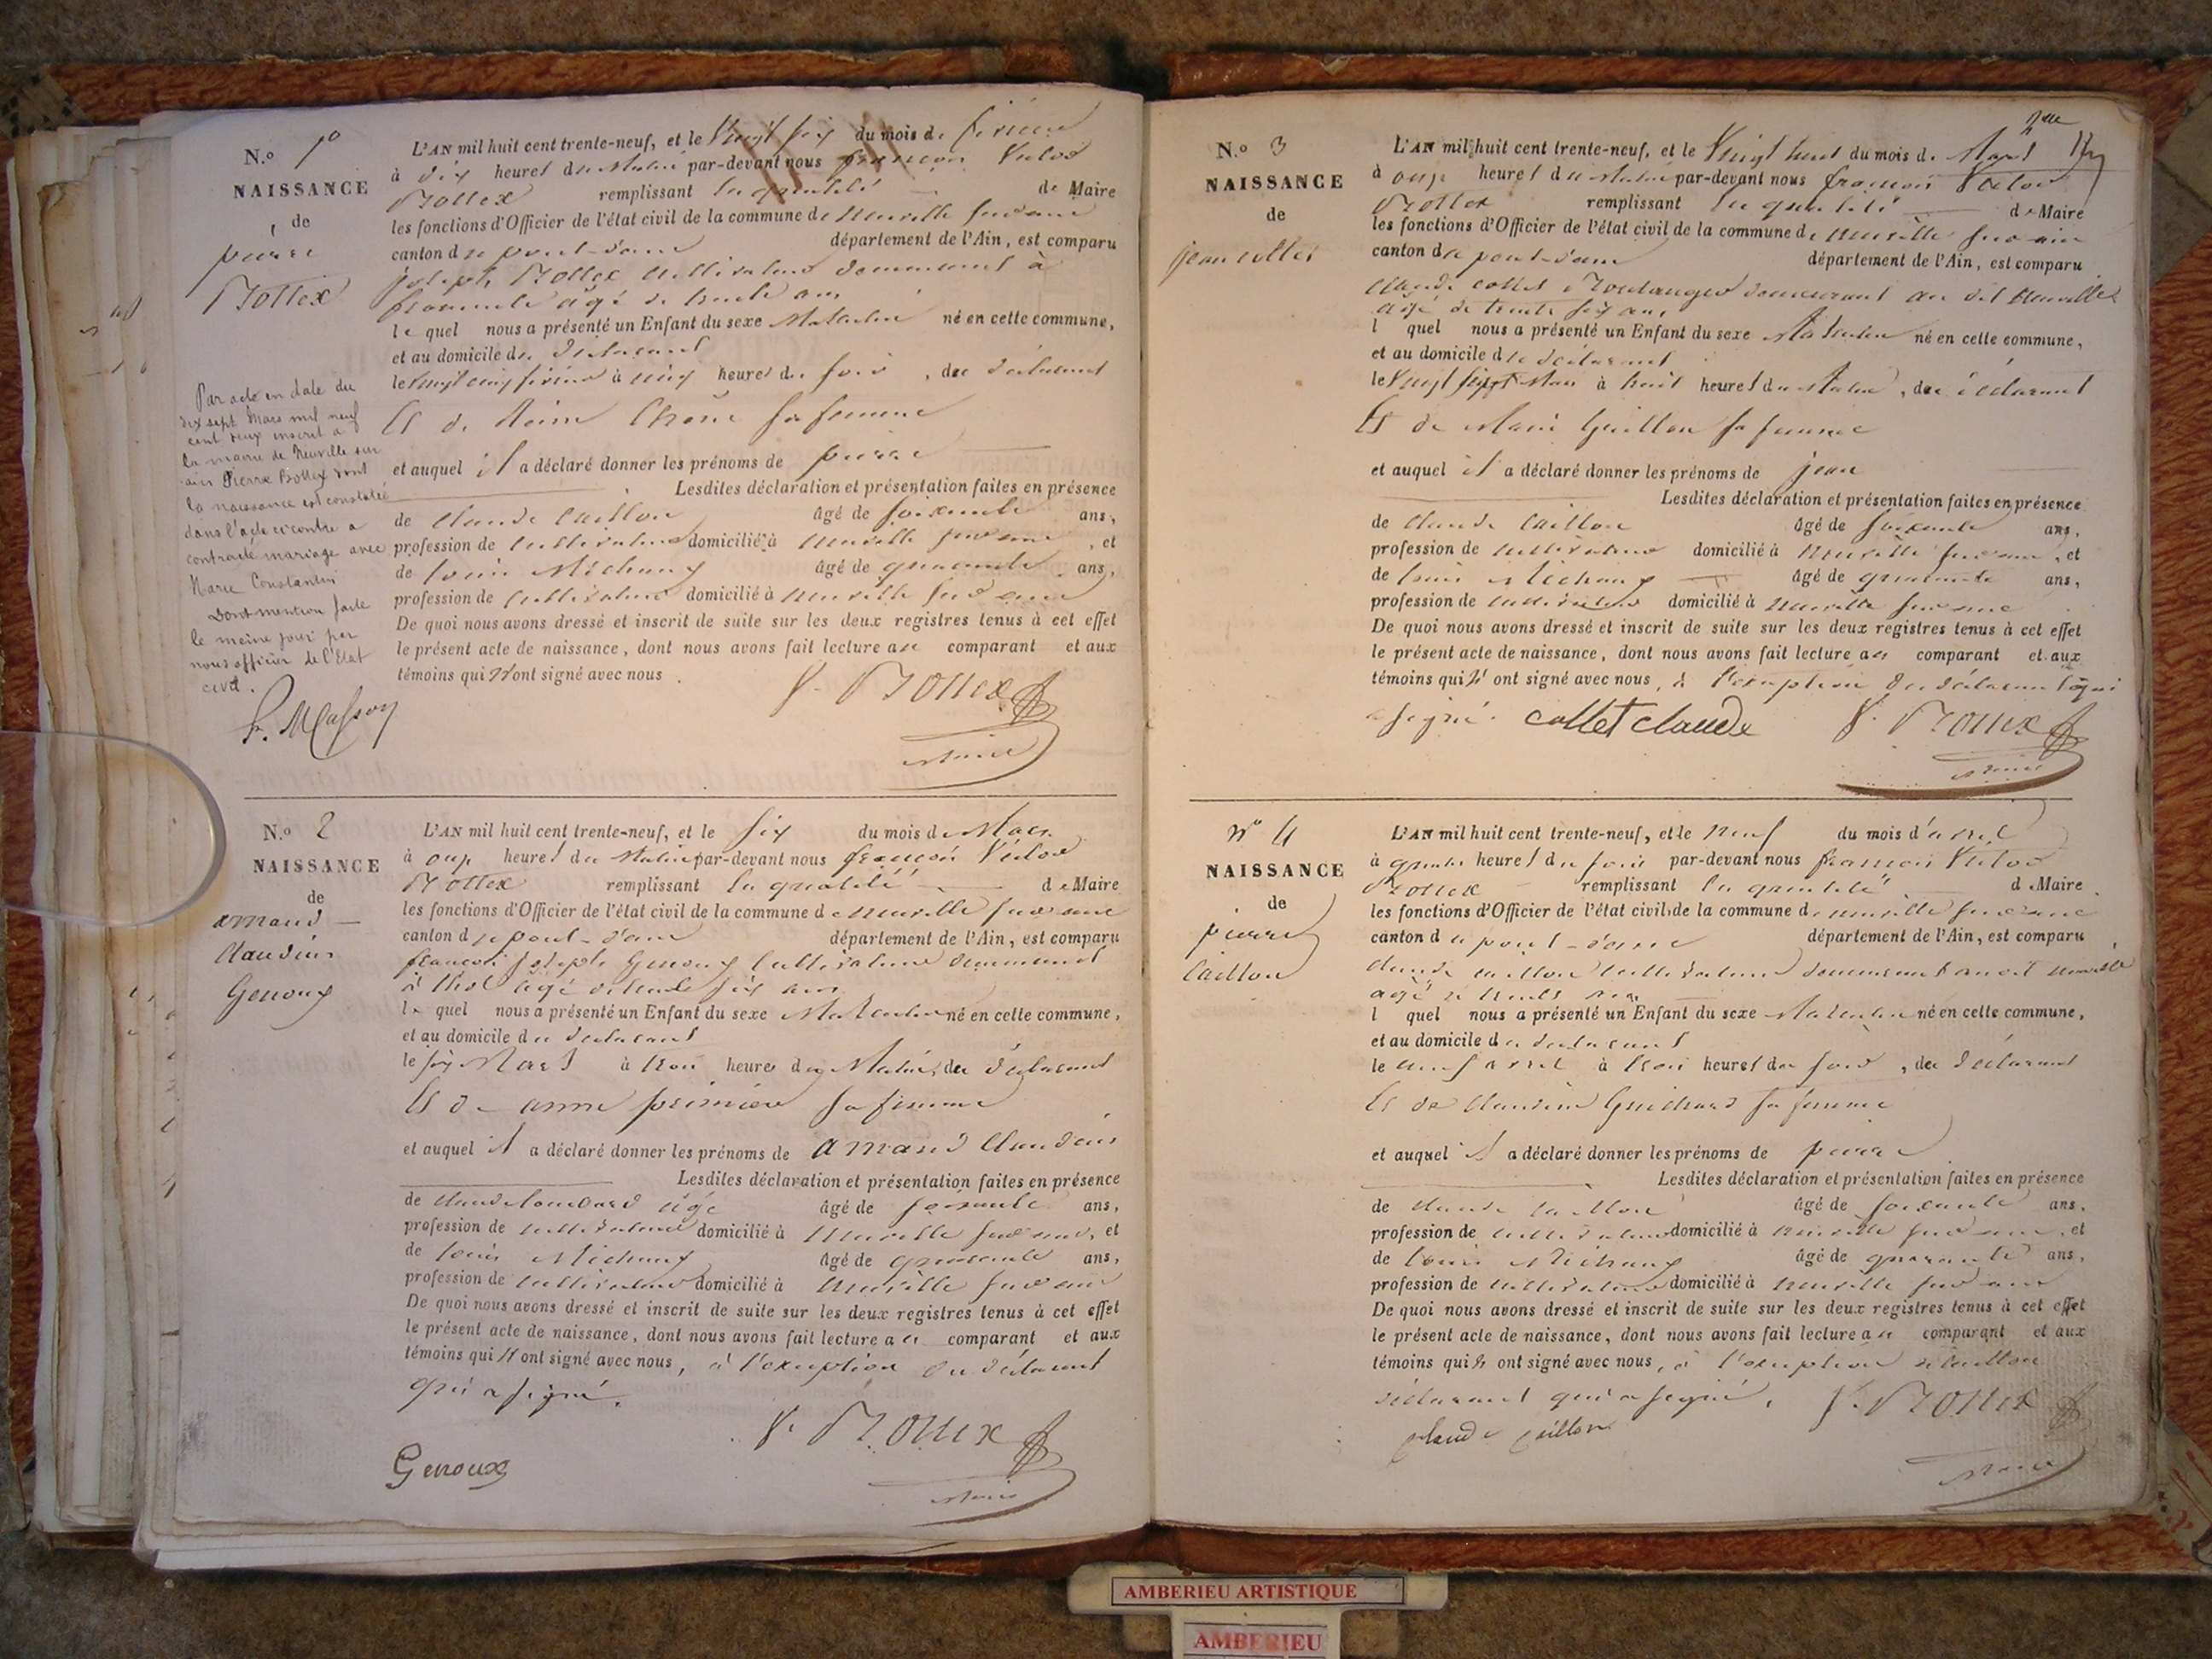 N.o 1o
NAISSANCE
de
pierre
Bottex
L'AN mil huit cent trente-neuf, et le Vingt six du mois de février
à dix heures du Matin par-devant nous françois Victor
Bottex remplissant la qualité de Maire
les fonctions d'Officier de l'état civil de la commune de neuville sur ain
canton de pont-d'ain département de l'Ain, est comparu
joseph Bottex cultivateur demeurant à
âgé de trente ans
lequel nous a présenté un Enfant du sexe Masculin né en cette commune,
et au domicile du déclarant
le Vingt cinq février à cinq heures du soir, du déclarant
Et de sa femme
et auquel il a déclaré donner les prénoms de pierre
Lesdites déclaration et présentation faites en présence
de Claude Caillon âgé de soixante ans,
profession de cultivateur domicilié à neuville sur ain, et
de louis Michaux âgé de quarante ans,
profession de cultivateur domicilié à neuville sur ain
De quoi nous avons dressé et inscrit de suite sur les deux registres tenus à cet effet
le présent acte de naissance, dont nous avons fait lecture au comparant et aux
témoins qui n'ont signé avec nous.
V. Bottex
Maire
Par acte en date du
dix sept Mars mil neuf
cent deux inscrit à
la mairie de Neuville sur
ain Pierre Bottex dont
la naissance est constatée
dans l'acte ci contre a
contracté mariage avec
Marie Constantin
Dont mention faite
le même jour par
nous officier de l'Etat
civil.
N.o 2
NAISSANCE
de
amand
Claudius
Genoux
L'AN mil huit cent trente-neuf, et le six du mois de Mars
à onze heures du Matin par-devant nous françois Victor
Bottex remplissant la qualité de Maire
les fonctions d'Officier de l'état civil de la commune de neuville sur ain
canton de pont-d'ain département de l'Ain, est comparu
françois joseph Genoux cultivateur demeurant
à Thol âgé de trente six ans
lequel nous a présenté un Enfant du sexe Masculin né en cette commune,
et au domicile du déclarant
le six Mars à trois heures du Matin, du déclarant
Et de anne sa femme
et auquel il a déclaré donner les prénoms de amand Claudius
Lesdites déclaration et présentation faites en présence
de Claude âgé âgé de soixante ans,
profession de cultivateur domicilié à neuville sur ain, et
de louis Michaux âgé de quarante ans,
profession de cultivateur domicilié à neuville sur ain
De quoi nous avons dressé et inscrit de suite sur les deux registres tenus à cet effet
le présent acte de naissance, dont nous avons fait lecture au comparant et aux
témoins qui n'ont signé avec nous, à l'exception du déclarant
qui a signé.
V. Bottex
Genoux
Maire
2me
N.o 3
NAISSANCE
de
jean collet
L'AN mil huit cent trente-neuf, et le Vingt huit du mois de Mars
à onze heures du Matin par-devant nous françois Victor
Bottex remplissant la qualité de Maire
les fonctions d'Officier de l'état civil de la commune de neuville sur ain
canton de pont-d'ain département de l'Ain, est comparu
claude collet Boulanger demeurant au dit neuville
âgé de trente six ans
l quel nous a présenté un Enfant du sexe Masculin né en cette commune,
et au domicile du déclarant
le Vingt sept Mars à huit heures du Matin, du déclarant
Et de Marie Guillon sa femme
et auquel il a déclaré donner les prénoms de jean
Lesdites déclaration et présentation faites en présence
de Claude Caillon âgé de soixante ans,
profession de cultivateur domicilié à neuville sur ain, et
de louis Michaux âgé de quarante ans,
profession de cultivateur domicilié à neuville sur ain
De quoi nous avons dressé et inscrit de suite sur les deux registres tenus à cet effet
le présent acte de naissance, dont nous avons fait lecture au comparant et aux
témoins qui n'ont signé avec nous, à l'exception du déclarant qui
a signé. collet claude V. Bottex
Maire
no 4
NAISSANCE
de
pierre
Caillon
L'AN mil huit cent trente-neuf, et le neuf du mois d'avril
à quatre heures du soir par-devant nous françois Victor
Bottex remplissant la qualité de Maire
les fonctions d'Officier de l'état civil de la commune de neuville sur ain
canton de pont-d'ain département de l'Ain, est comparu
claude caillon cultivateur demeurant au dit neuville
âgé de trente ans
l quel nous a présenté un Enfant du sexe Masculin né en cette commune,
et au domicile du déclarant
le neuf avril à trois heures du soir, du déclarant
Et de Claudine Guichard sa femme
et auquel il a déclaré donner les prénoms de pierre
Lesdites déclaration et présentation faites en présence
de claude Caillon âgé de soixante ans,
profession de cultivateur domicilié à neuville sur ain, et
de louis Michaux âgé de quarante ans,
profession de cultivateur domicilié à neuville sur ain
De quoi nous avons dressé et inscrit de suite sur les deux registres tenus à cet effet
le présent acte de naissance, dont nous avons fait lecture au comparant et aux
témoins qui n'ont signé avec nous, à l'exception de Caillon
déclarant qui a signé. V. Bottex
claude caillon
Maire
AMBERIEU ARTISTIQUE
AMBERIEU